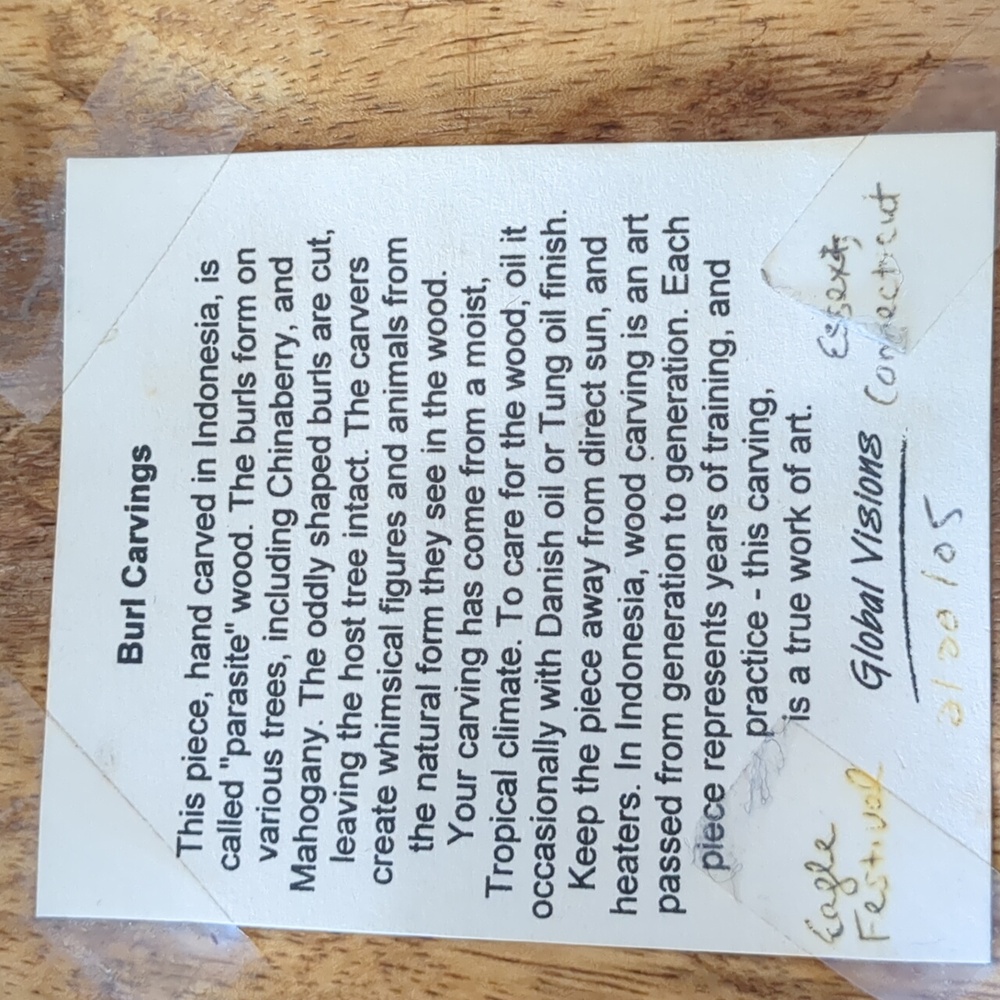 Burl Carvings
This piece, hand carved in Indonesia, is
called "parasite" wood. The burls form on
various trees, including Chinaberry, and
Mahogany. The oddly shaped burls are cut,
leaving the host tree intact. The carvers
create whimsical figures and animals from
the natural form they see in the wood.
Your carving has come from a moist,
Tropical climate. To care for the wood, oil it
occasionally with Danish oil or Tung oil finish.
Keep the piece away from direct sun, and
heaters. In Indonesia, wood carving is an art
passed from generation to generation. Each
piece represents years of training, and
practice - this carving,
is a true work of art.
Eagle
Festival
Global Visions
Essex,
Connecticut
2/20/05